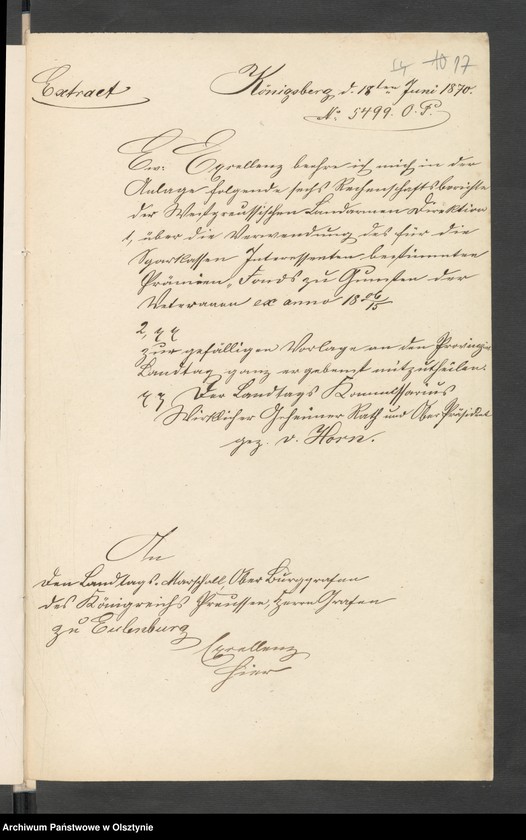 14 10 17
Extract
Königsberg, d. 18ten Juni 1870.
No. 5499. O. P.
Ew: Excellenz beehre ich mich in der
Anlage folgende sechs Rechenschaftsberichte
der Westpreussischen Landarmen Direktion
1, über die Verwendung des für die
Sparkassen Interessenten bestimmten
Prämien-Fonds zu Gunsten der
Veteranen ex anno 18 06/15
2, pp
zur gefälligen Vorlage an den Provinzial
Landtag ganz ergebenst mitzutheilen.
Der Landtags Kommissarius
Wirklicher Geheimer Rath und Ober Präsident
gez. v. Horn.
An
den Landtags-Marschall Ober Burggrafen
des Königreichs Preussen, Herrn Grafen
zu Eulenburg
Excellenz
hier
Archiwum Państwowe w Olsztynie